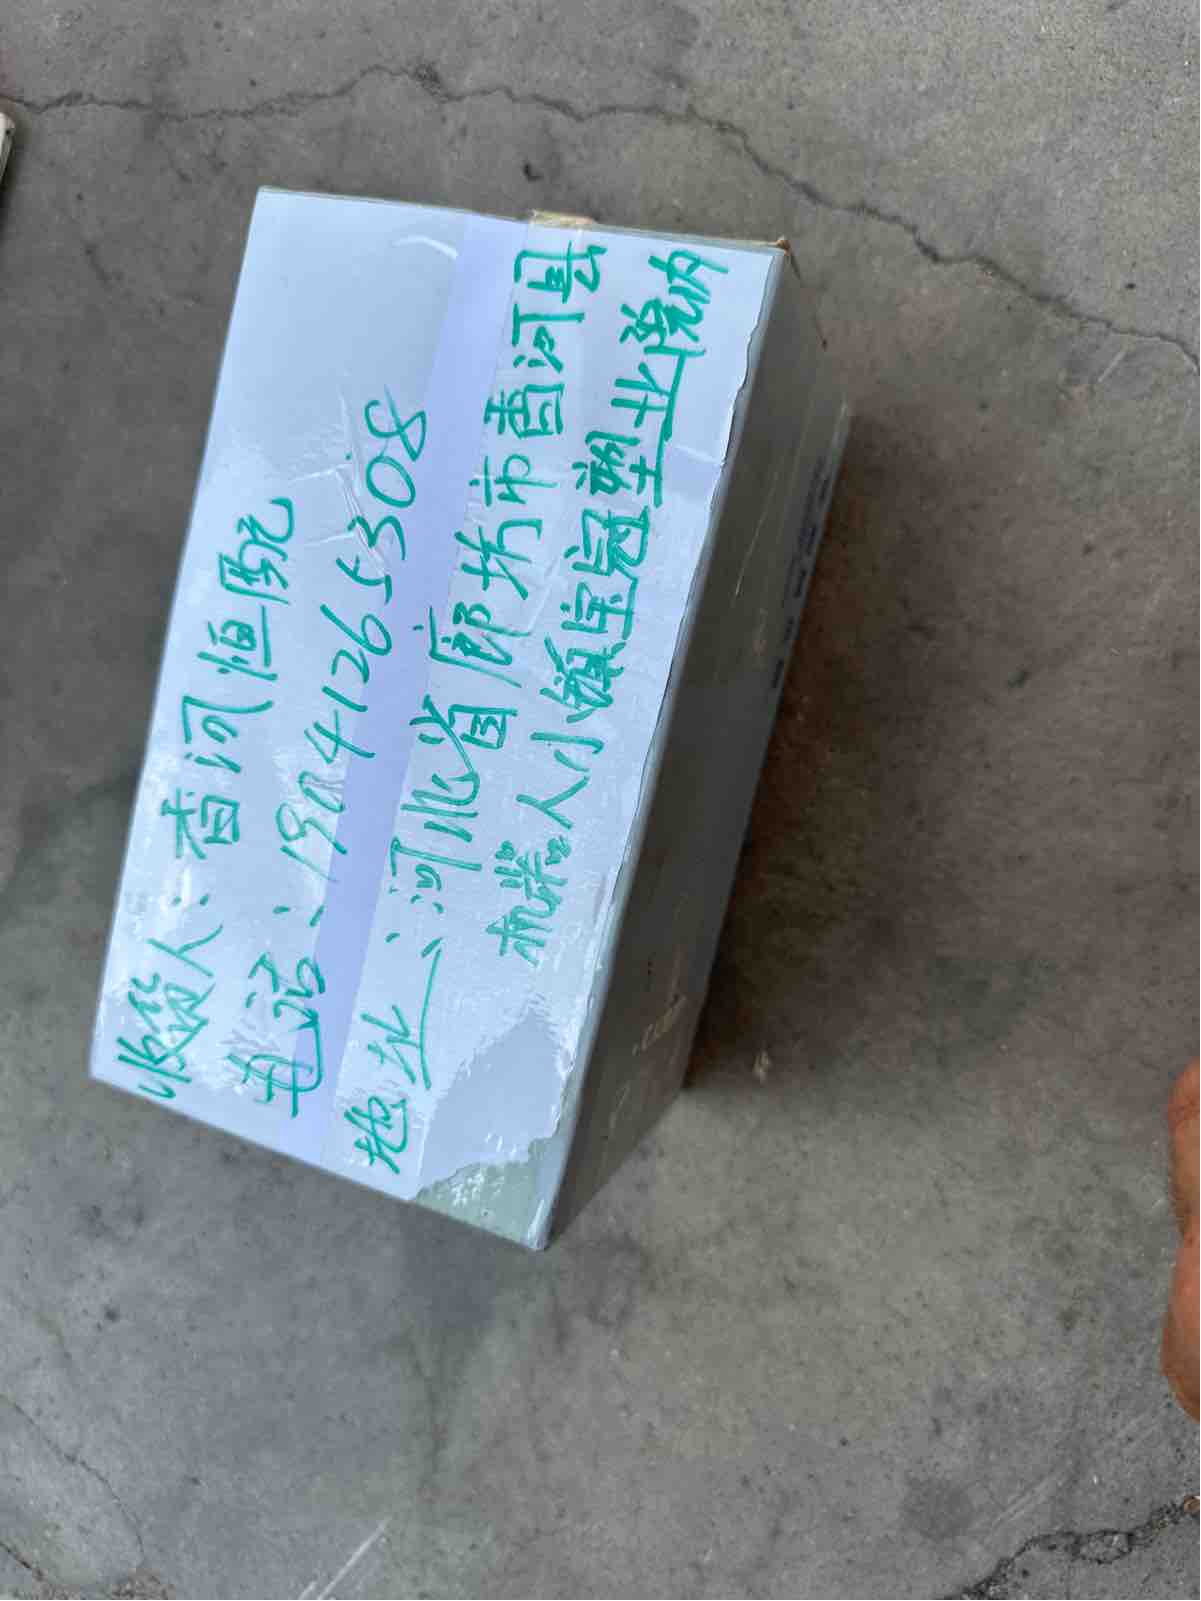 收货人：香河恒配
电话：19041265308
地址：河北省廊坊市香河县
机器人小镇宝冠塑业院内